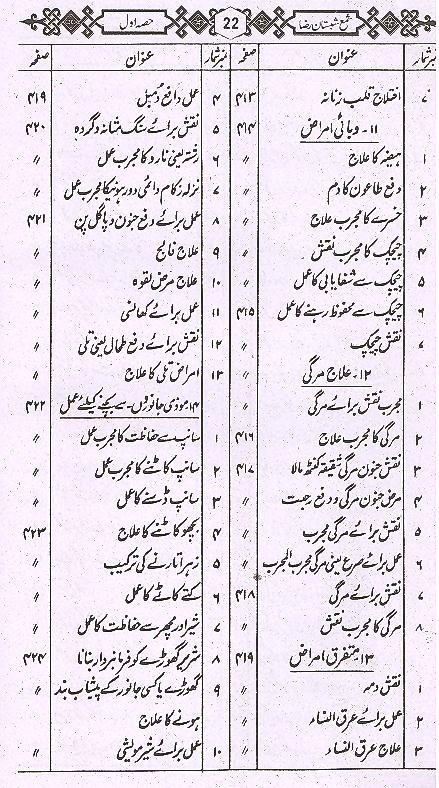 شمع شبستان رضا 22 حصہ اول
نمبر شمار عنوان صفحہ
۷ اختلاج قلب زنانہ ۴۱۳
۱۱۔ وبائی امراض ۴۱۴
۱ ہیضہ کا علاج 〃
۲ دفع طاعون کا دم 〃
۳ خسرے کا مجرب علاج 〃
۴ چیچک کا مجرب نقش 〃
۵ چیچک سے شفایابی کا عمل 〃
۶ چیچک سے محفوظ رہنے کا عمل ۴۱۵
۷ نقش چیچک 〃
۱۲۔ علاج مرگی 〃
۱ مجرب نقش برائے مرگی 〃
۲ مرگی کا مجرب علاج ۴۱۶
۳ نقش جنون مرگی شقیقہ کنٹھ مالا ۴۱۷
۴ مرض جنون مرگی و دفع رجعت 〃
۵ نقش برائے مرگی مجرب 〃
۶ عمل برائے صرع یعنی مرگی مجرب المجرب 〃
۷ نقش برائے مرگی ۴۱۸
۸ مرگی کا مجرب نقش 〃
۱۳۔ متفرق امراض ۴۱۹
۱ نقش دمہ 〃
۲ عمل برائے عرق النساء 〃
۳ علاج عرق النساء 〃
نمبر شمار عنوان صفحہ
۴ عمل دافع دُمبل ۴۱۹
۵ نقش برائے سنگ مثانہ و گردہ ۴۲۰
۶ رشتہ یعنی نارو کا مجرب عمل 〃
۷ نزلہ زکام دائمی دور ہونیکا مجرب عمل 〃
۸ عمل برائے دفع جنون و پاگل پن ۴۲۱
۹ علاج فالج 〃
۱۰ علاج مرض لقوہ 〃
۱۱ عمل برائے کھانسی 〃
۱۲ نقش برائے دفع طحال یعنی تلی 〃
۱۳ امراض تلی کا علاج 〃
۱۴۔ موذی جانوروں سے بچنے کیلئے عمل ۴۲۲
۱ سانپ سے حفاظت کا مجرب عمل 〃
۲ سانپ کاٹنے کا مجرب عمل 〃
۳ سانپ ڈسنے کا عمل 〃
۴ بچھو کاٹنے کا علاج ۴۲۳
۵ زہر اتارنے کی ترکیب 〃
۶ کتے کاٹے کا عمل 〃
۷ شیر اور مچھر سے حفاظت کا عمل 〃
۸ شریر گھوڑے کو فرمانبردار بنانا ۴۲۴
۹ گھوڑے یا کسی جانور کے پیشاب بند 〃
ہونے کا علاج
۱۰ عمل برائے شیر مویشی 〃